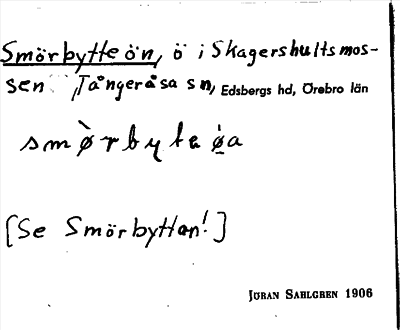 Smörbytteön, ö i Skagershultsmos-
sen, Tångeråsa sn, Edsbergs hd, Örebro län
smø̀rbyta ǿ̠a
[Se Smörbyttan!]
JÖRAN SAHLGREN 1906